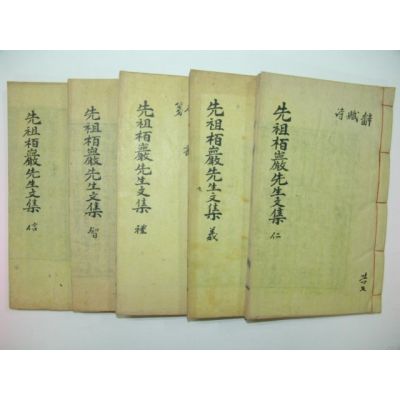 辭賦詩
先祖栢巖先生文集 仁
共五
先祖栢巖先生文集 義
先祖栢巖先生文集 禮
先祖栢巖先生文集 智
先祖栢巖先生文集 信